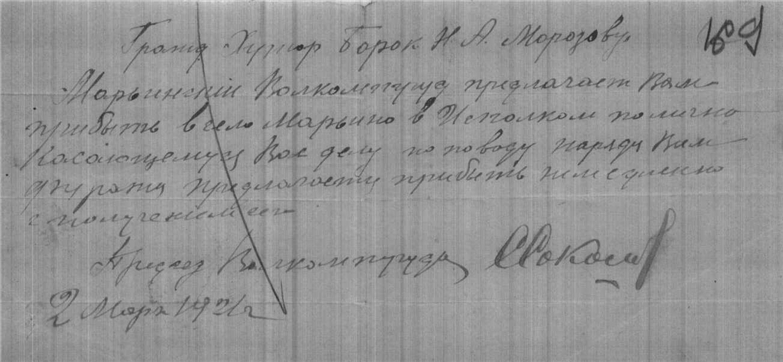 Гражд Хутор Борок Н. А. Морозову
Марьинскій Волкомтруд предлагает Вам
прибыть в село Марьино в Исполком по лично
касающемуся Вас делу по поводу наряда Вам
предлагается прибыть немедленно
с получением сего
Председ Волкомтруда ССоколов
2 Марта 1921 г